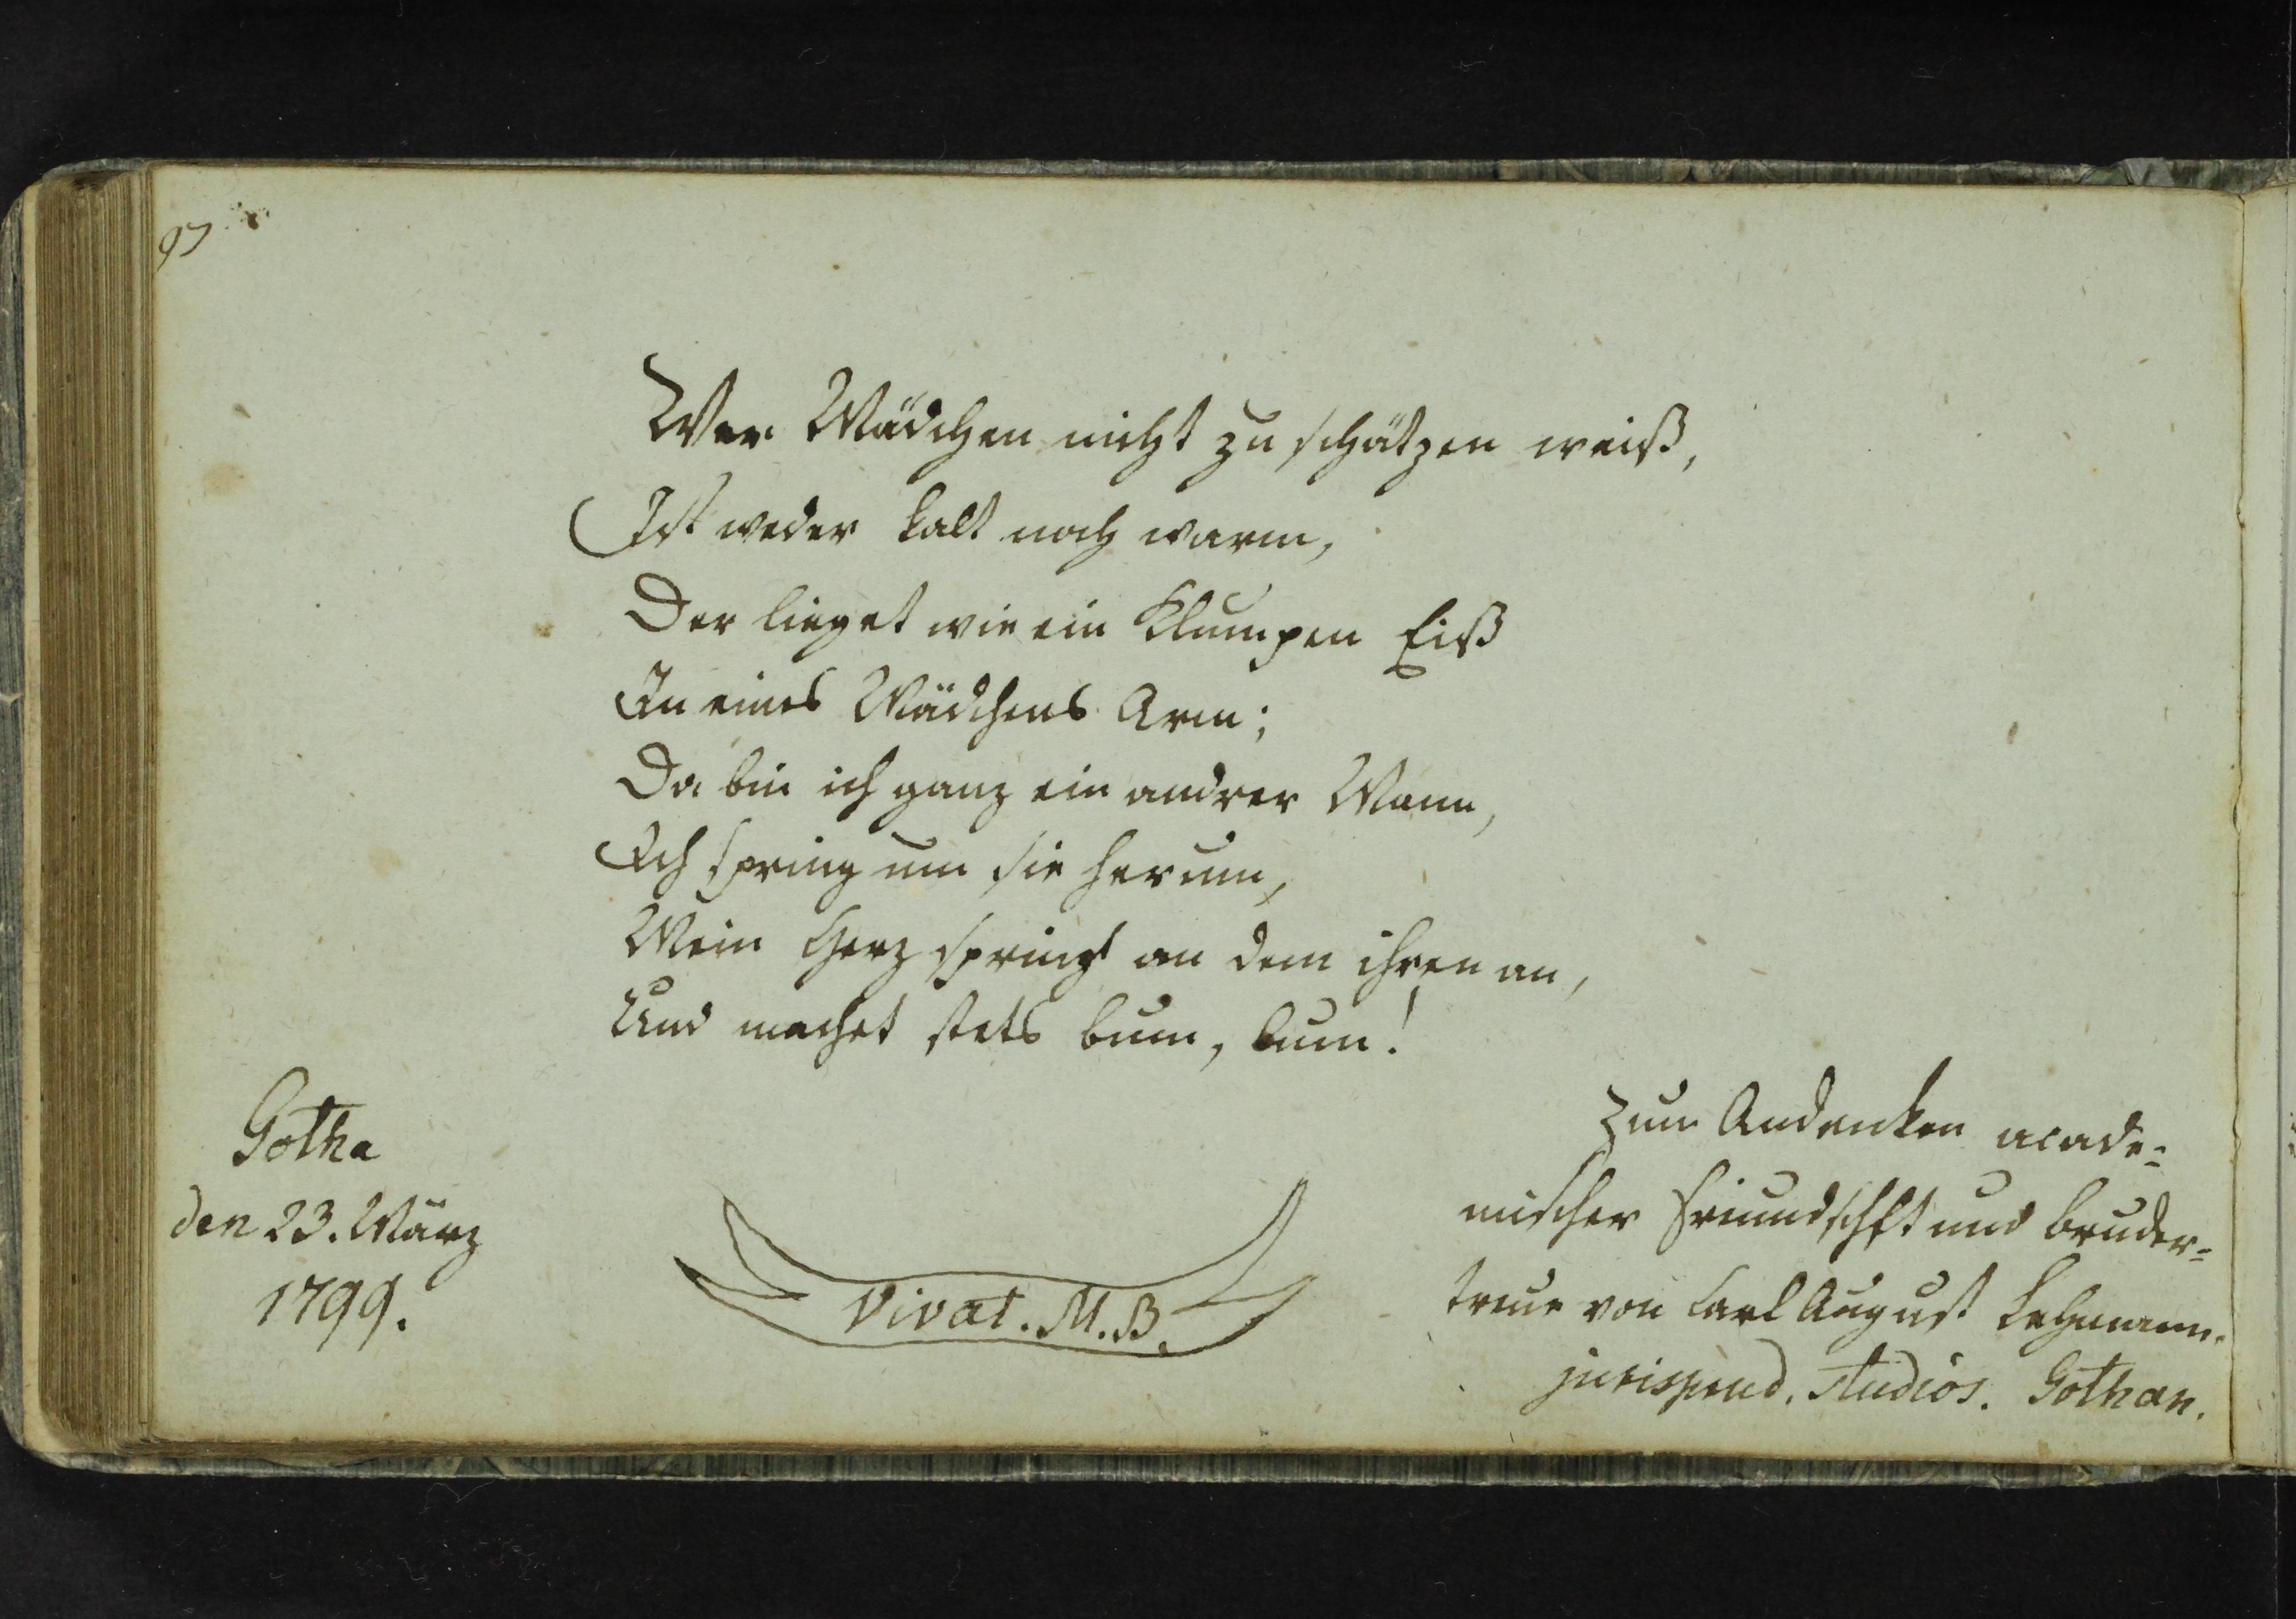 97
Wer Mädchen nicht zu schätzen weiß,
Ist weder kalt noch warm,
Der lieget wie ein Klumpen Eiß
In eines Mädchens Arm;
Da bin ich ganz ein andrer Mann,
Ich spring um sie herum,
Mein Herz springt an dem ihren an,
Und machet stets bum, bum!
Gotha
den 23. März
1799.
Vivat. M. B.
Zum Andenken acade-
mischer Freundschft und Bruder-
treue von Carl August Lehmann.
jurisprud. studios. Gothan.